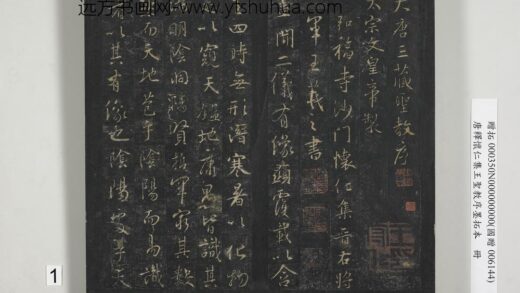 远方书画网-www.yfshuhua.com
大唐三藏聖教序
太宗文皇帝製
弘福寺沙門懷仁集晉右將
軍王羲之書
蓋聞二儀有像顯覆載以含
四時無形潛寒暑以化物
以窺天鑑地庸愚皆識其
明陰洞陽賢哲罕窮其數
而天地苞乎陰陽而易識
以其有像也陰陽處乎天
贈拓 000350N000000000(國贈 006144)
唐釋懷仁集王聖教序墨拓本 冊
1